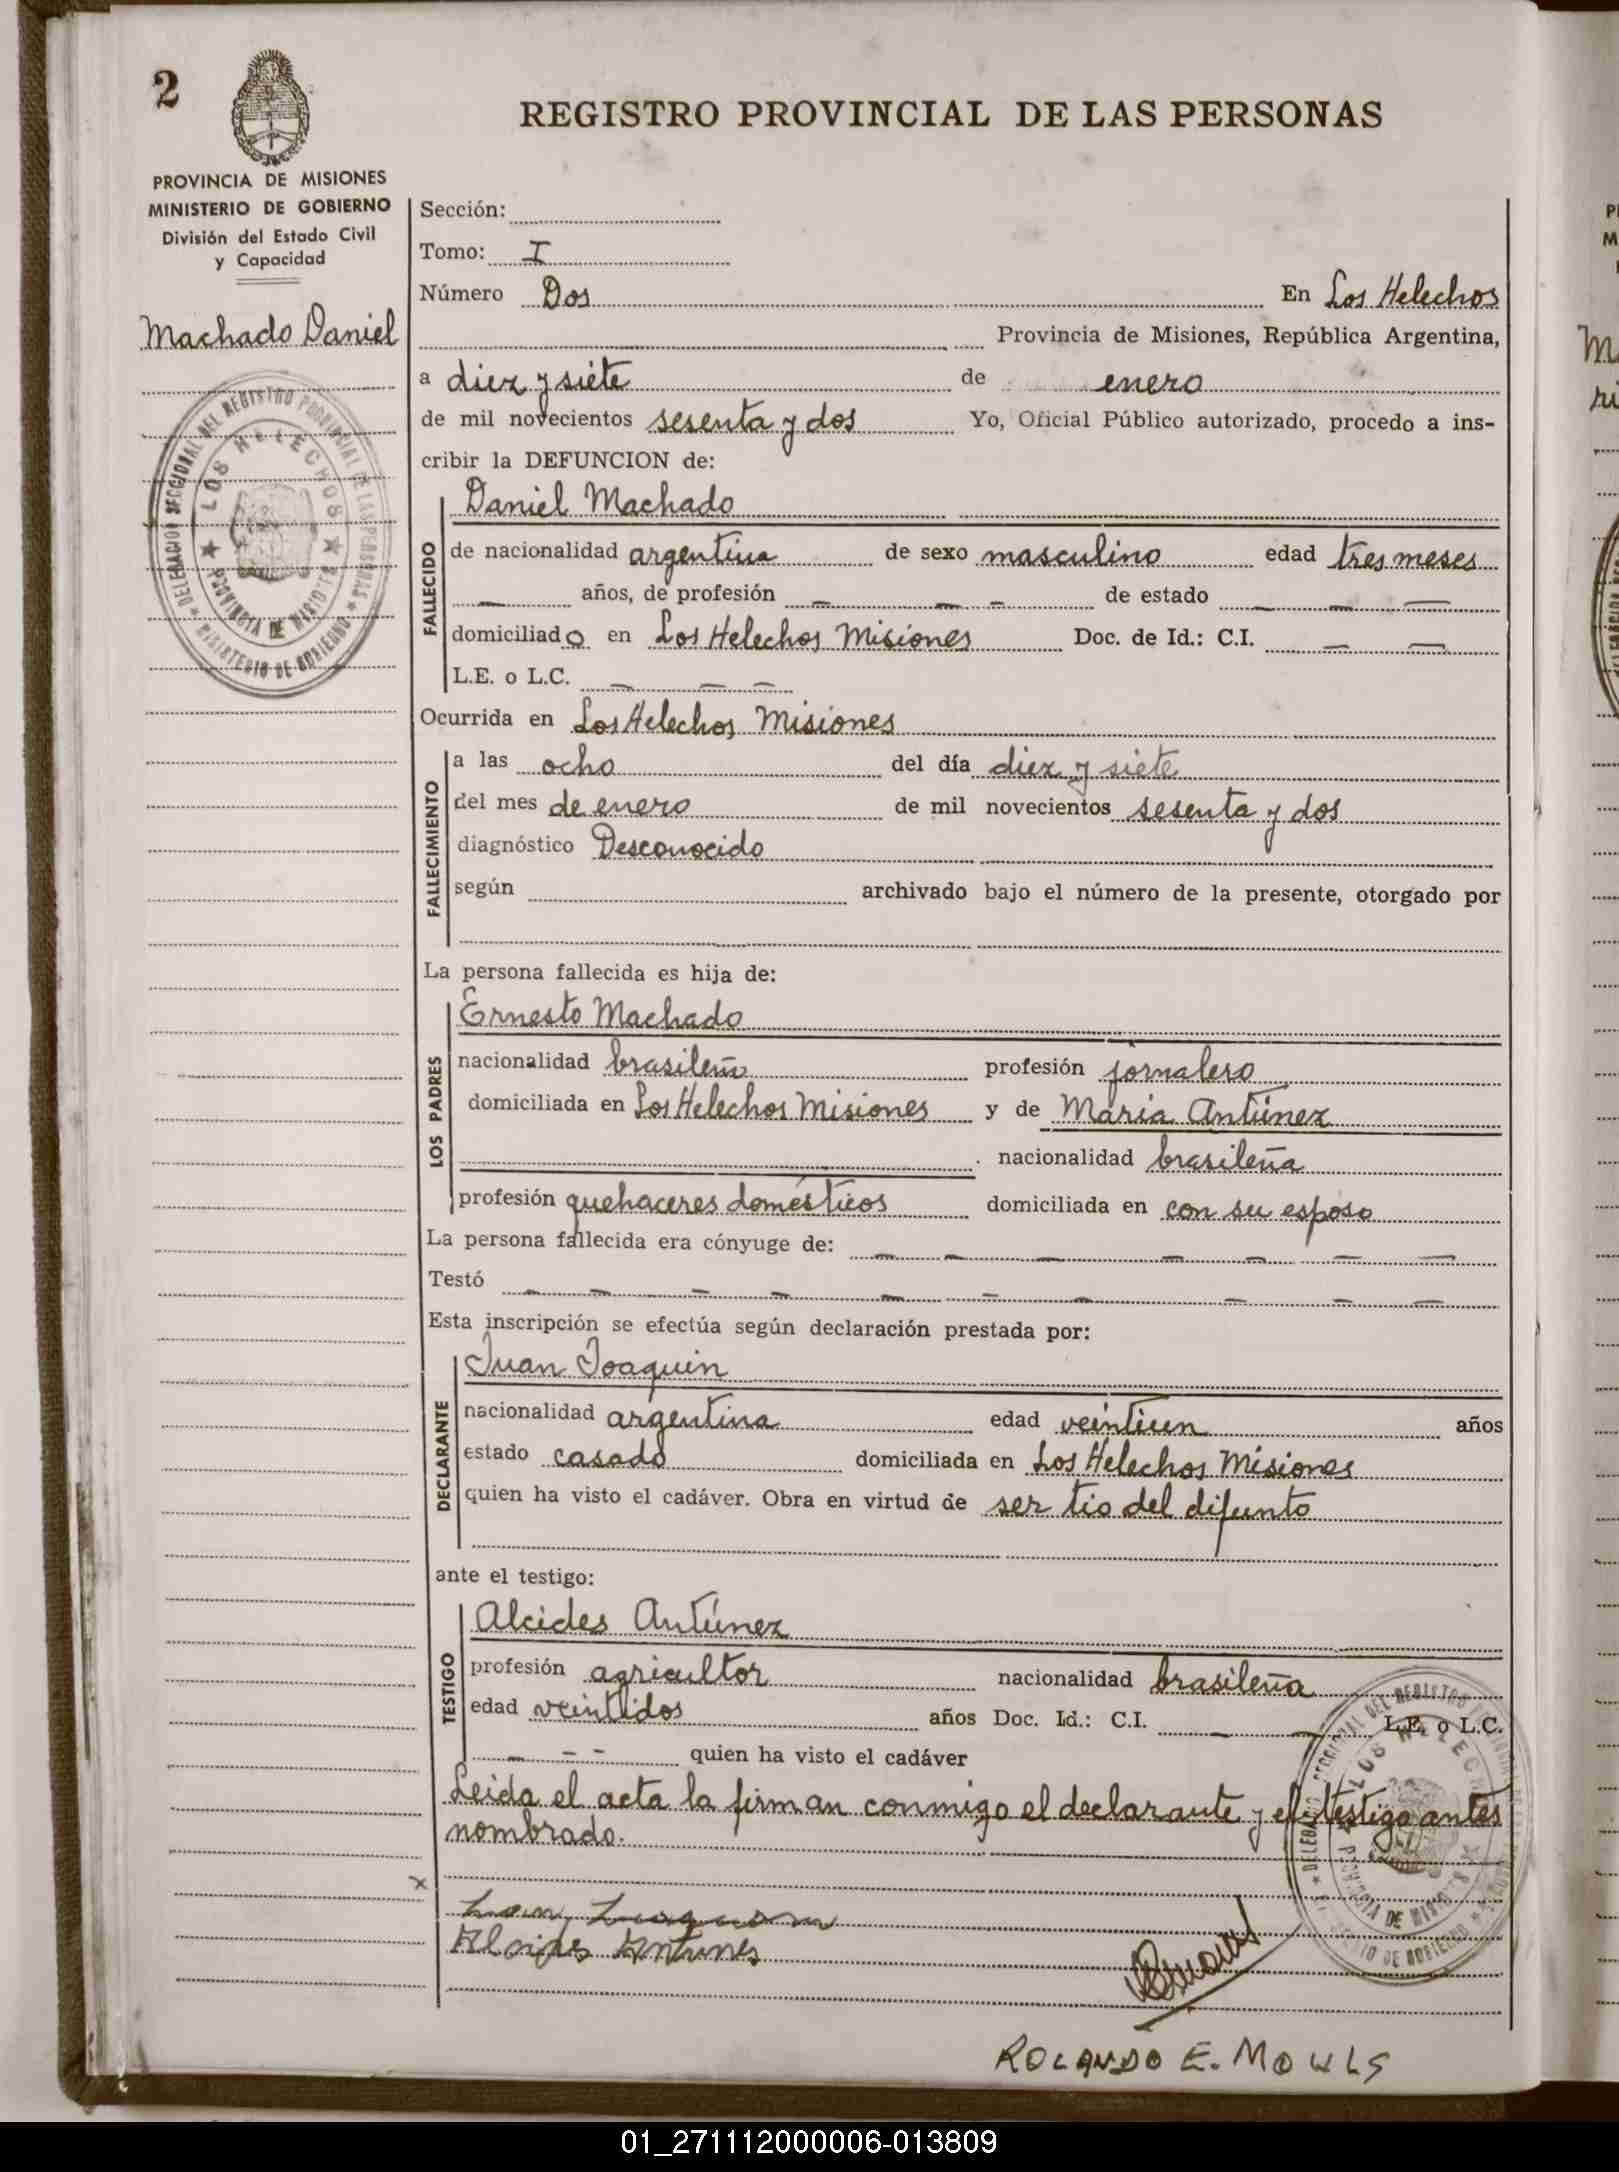 2
REGISTRO PROVINCIAL DE LAS PERSONAS
PROVINCIA DE MISIONES
MINISTERIO DE GOBIERNO
División del Estado Civil
y Capacidad
Machado Daniel
DELEGACION SECCIONAL DEL REGISTRO PROVINCIAL DE LAS PERSONAS
MINISTERIO DE GOBIERNO
LOS HELECHOS
PROVINCIA DE MISIONES
Sección:
Tomo: I
Número Dos En Los Helechos
Provincia de Misiones, República Argentina,
a diez y siete de enero
de mil novecientos sesenta y dos Yo, Oficial Público autorizado, procedo a ins-
cribir la DEFUNCION de:
FALLECIDO
Daniel Machado
de nacionalidad argentina de sexo masculino edad tres meses
— años, de profesión — — — de estado — — —
domiciliado en Los Helechos Misiones Doc. de Id.: C.I. — —
L.E. o L.C. — — —
Ocurrida en Los Helechos Misiones
FALLECIMIENTO
a las ocho del día diez y siete
del mes de enero de mil novecientos sesenta y dos
diagnóstico Desconocido
según archivado bajo el número de la presente, otorgado por
La persona fallecida es hija de:
LOS PADRES
Ernesto Machado
nacionalidad brasileño profesión jornalero
domiciliada en Los Helechos Misiones y de María Antúnez
nacionalidad brasileña
profesión quehaceres domésticos domiciliada en con su esposo
La persona fallecida era cónyuge de: — — — — — — —
Testó — — — — — — — — — —
Esta inscripción se efectúa según declaración prestada por:
DECLARANTE
Juan Joaquin
nacionalidad argentina edad veintiun años
estado casado domiciliada en Los Helechos Misiones
quien ha visto el cadáver. Obra en virtud de ser tio del difunto
ante el testigo:
TESTIGO
Alcides Antúnez
profesión agricultor nacionalidad brasileña
edad veintidos años Doc. Id.: C.I. — — L.E. o L.C.
— — — quien ha visto el cadáver
Leida el acta la firman conmigo el declarante y el testigo antes
nombrado.
x
Alcides Antunes
DELEGACION SECCIONAL DEL REGISTRO PROVINCIAL DE LAS PERSONAS
MINISTERIO DE GOBIERNO
LOS HELECHOS
PROVINCIA DE MISIONES
ROLANDO E. MOULS
01_271112000006-013809